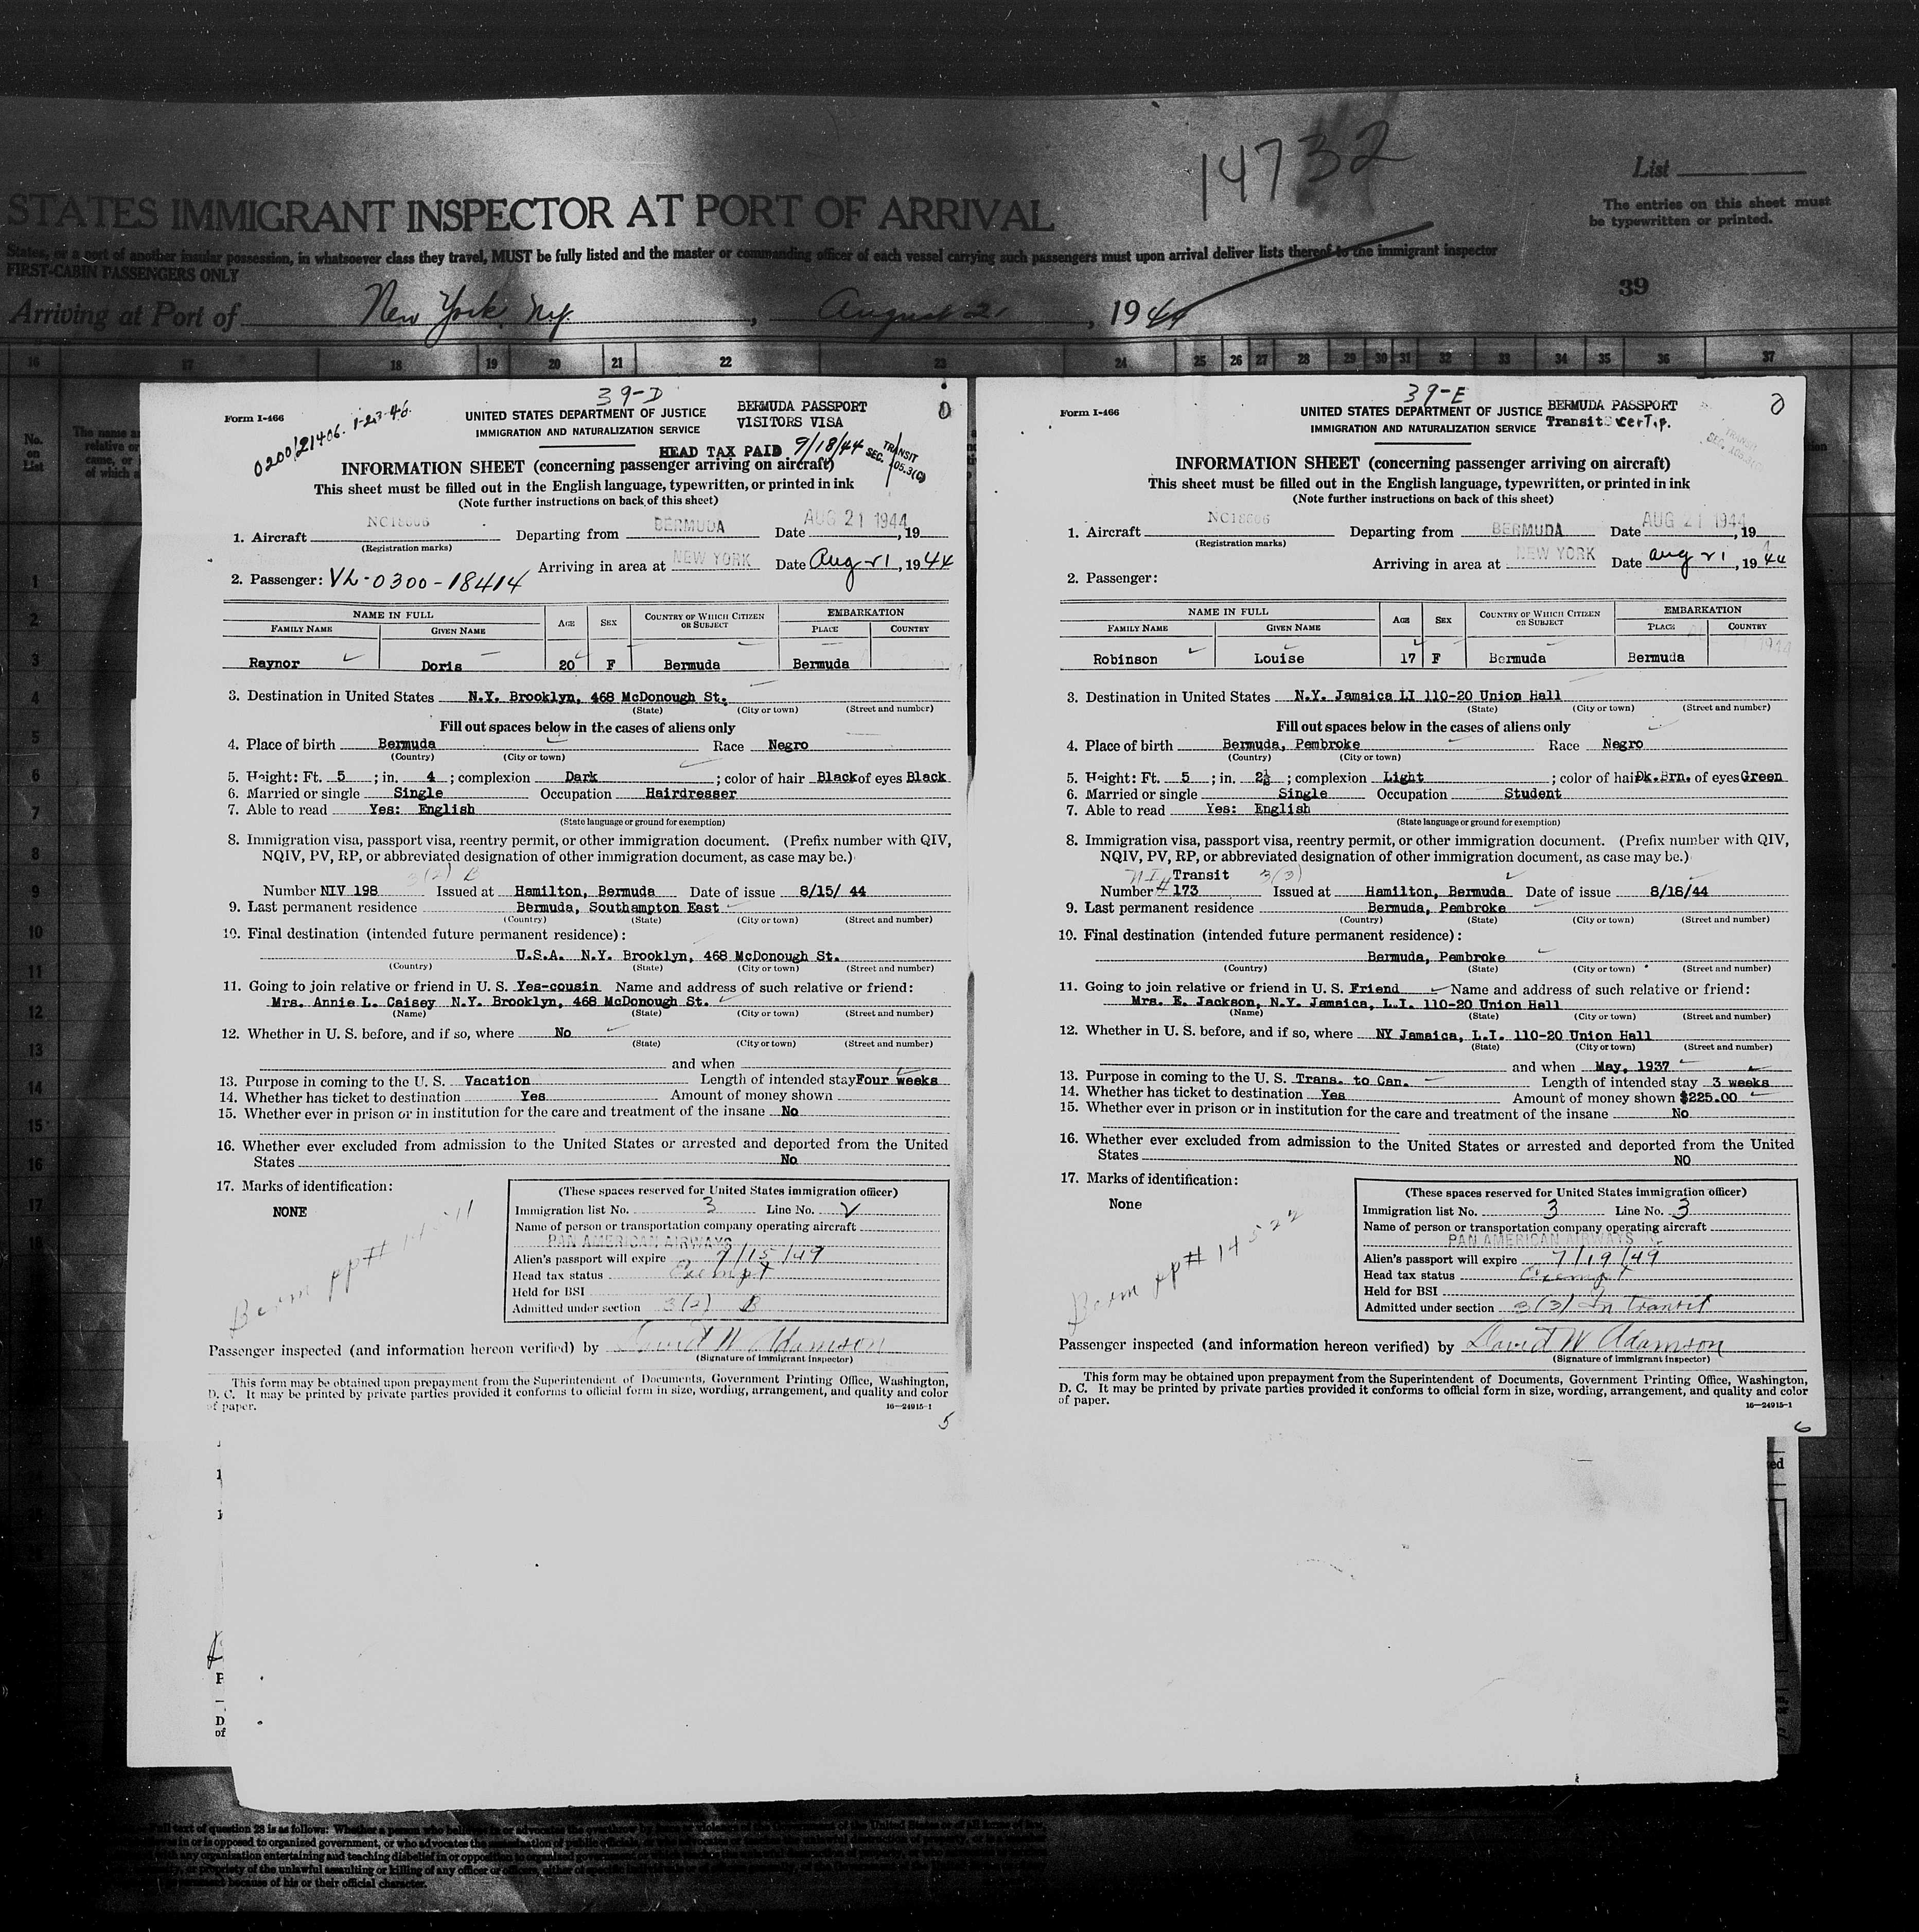 14732
List
STATES IMMIGRANT INSPECTOR AT PORT OF ARRIVAL
The entries on this sheet must
be typewritten or printed.
States, or a port of another insular possession, in whatsoever class they travel, MUST be fully listed and the master or commanding officer of each vessel carrying such passengers must upon arrival deliver lists thereof to the immigrant inspector
FIRST-CABIN PASSENGERS ONLY
39
Arriving at Port of New York, NY. , August 21 , 1944
16 17 18 19 20 21 22 23 24 25 26 27 28 29 30 31 32 33 34 35 36 37
No. on List
39-D
Form I-466
0200/21406. 1-23-46.
UNITED STATES DEPARTMENT OF JUSTICE
IMMIGRATION AND NATURALIZATION SERVICE
BERMUDA PASSPORT
VISITORS VISA
HEAD TAX PAID 9/18/44
TRANSIT
SEC. 105.3(C)
INFORMATION SHEET (concerning passenger arriving on aircraft)
This sheet must be filled out in the English language, typewritten, or printed in ink
(Note further instructions on back of this sheet)
1. Aircraft NC18606 Departing from BERMUDA Date AUG 21 1944, 19
(Registration marks)
Arriving in area at NEW YORK Date Aug 21, 1944
2. Passenger: VL-0300-18414
NAME IN FULL AGE SEX COUNTRY OF WHICH CITIZEN OR SUBJECT EMBARKATION
FAMILY NAME GIVEN NAME PLACE COUNTRY
Raynor Doris 20 F Bermuda Bermuda
3. Destination in United States N.Y. Brooklyn, 468 McDonough St.
(State) (City or town) (Street and number)
Fill out spaces below in the cases of aliens only
4. Place of birth Bermuda Race Negro
(Country) (City or town)
5. Height: Ft. 5 ; in. 4 ; complexion Dark ; color of hair Black of eyes Black
6. Married or single Single Occupation Hairdresser
7. Able to read Yes: English
(State language or ground for exemption)
8. Immigration visa, passport visa, reentry permit, or other immigration document. (Prefix number with QIV,
NQIV, PV, RP, or abbreviated designation of other immigration document, as case may be.)
3(2) B
Number NIV 198 Issued at Hamilton, Bermuda Date of issue 8/15/ 44
9. Last permanent residence Bermuda, Southampton East
(Country) (State) (City or town) (Street and number)
10. Final destination (intended future permanent residence):
U.S.A. N.Y. Brooklyn, 468 McDonough St.
(Country) (State) (City or town) (Street and number)
11. Going to join relative or friend in U. S. Yes-cousin Name and address of such relative or friend:
Mrs. Annie L. Caisey N.Y. Brooklyn, 468 McDonough St.
(Name) (State) (City or town) (Street and number)
12. Whether in U. S. before, and if so, where No
(State) (City or town) (Street and number)
and when
13. Purpose in coming to the U. S. Vacation Length of intended stay Four weeks
14. Whether has ticket to destination Yes Amount of money shown
15. Whether ever in prison or in institution for the care and treatment of the insane No
16. Whether ever excluded from admission to the United States or arrested and deported from the United
States No
17. Marks of identification:
NONE
Berm pp#
(These spaces reserved for United States immigration officer)
Immigration list No. 3 Line No. 2
Name of person or transportation company operating aircraft
PAN AMERICAN AIRWAYS
Alien's passport will expire 7/15/49
Head tax status Exempt
Held for BSI
Admitted under section 3(2) B
Passenger inspected (and information hereon verified) by David W Adamson
(Signature of immigrant inspector)
This form may be obtained upon prepayment from the Superintendent of Documents, Government Printing Office, Washington,
D. C. It may be printed by private parties provided it conforms to official form in size, wording, arrangement, and quality and color
of paper.
16—24915-1
5
39-E
Form I-466
UNITED STATES DEPARTMENT OF JUSTICE
IMMIGRATION AND NATURALIZATION SERVICE
BERMUDA PASSPORT
Transit Certip.
TRANSIT
SEC. 105.3(C)
INFORMATION SHEET (concerning passenger arriving on aircraft)
This sheet must be filled out in the English language, typewritten, or printed in ink
(Note further instructions on back of this sheet)
1. Aircraft NC18606 Departing from BERMUDA Date AUG 21 1944, 19
(Registration marks)
Arriving in area at NEW YORK Date Aug 21, 1944
2. Passenger:
NAME IN FULL AGE SEX COUNTRY OF WHICH CITIZEN OR SUBJECT EMBARKATION
FAMILY NAME GIVEN NAME PLACE COUNTRY
Robinson Louise 17 F Bermuda Bermuda
3. Destination in United States N.Y. Jamaica LI 110-20 Union Hall
(State) (City or town) (Street and number)
Fill out spaces below in the cases of aliens only
4. Place of birth Bermuda, Pembroke Race Negro
(Country) (City or town)
5. Height: Ft. 5 ; in. 2½ ; complexion Light ; color of hair Dk.Brn. of eyes Green
6. Married or single Single Occupation Student
7. Able to read Yes: English
(State language or ground for exemption)
8. Immigration visa, passport visa, reentry permit, or other immigration document. (Prefix number with QIV,
NQIV, PV, RP, or abbreviated designation of other immigration document, as case may be.)
NI Transit 3(3)
Number #173 Issued at Hamilton, Bermuda Date of issue 8/18/44
9. Last permanent residence Bermuda, Pembroke
(Country) (State) (City or town) (Street and number)
10. Final destination (intended future permanent residence):
Bermuda, Pembroke
(Country) (State) (City or town) (Street and number)
11. Going to join relative or friend in U. S. Friend Name and address of such relative or friend:
Mrs. E. Jackson, N.Y. Jamaica, L.I. 110-20 Union Hall
(Name) (State) (City or town) (Street and number)
12. Whether in U. S. before, and if so, where NY Jamaica, L.I. 110-20 Union Hall
(State) (City or town) (Street and number)
and when May, 1937
13. Purpose in coming to the U. S. Trans. to Can. Length of intended stay 3 weeks
14. Whether has ticket to destination Yes Amount of money shown $225.00
15. Whether ever in prison or in institution for the care and treatment of the insane No
16. Whether ever excluded from admission to the United States or arrested and deported from the United
States NO
17. Marks of identification:
None
Berm pp# 14522
(These spaces reserved for United States immigration officer)
Immigration list No. 3 Line No. 3
Name of person or transportation company operating aircraft
PAN AMERICAN AIRWAYS
Alien's passport will expire 7/19/49
Head tax status Exempt
Held for BSI
Admitted under section 3(3) In transit
Passenger inspected (and information hereon verified) by David W Adamson
(Signature of immigrant inspector)
This form may be obtained upon prepayment from the Superintendent of Documents, Government Printing Office, Washington,
D. C. It may be printed by private parties provided it conforms to official form in size, wording, arrangement, and quality and color
of paper.
16—24915-1
6